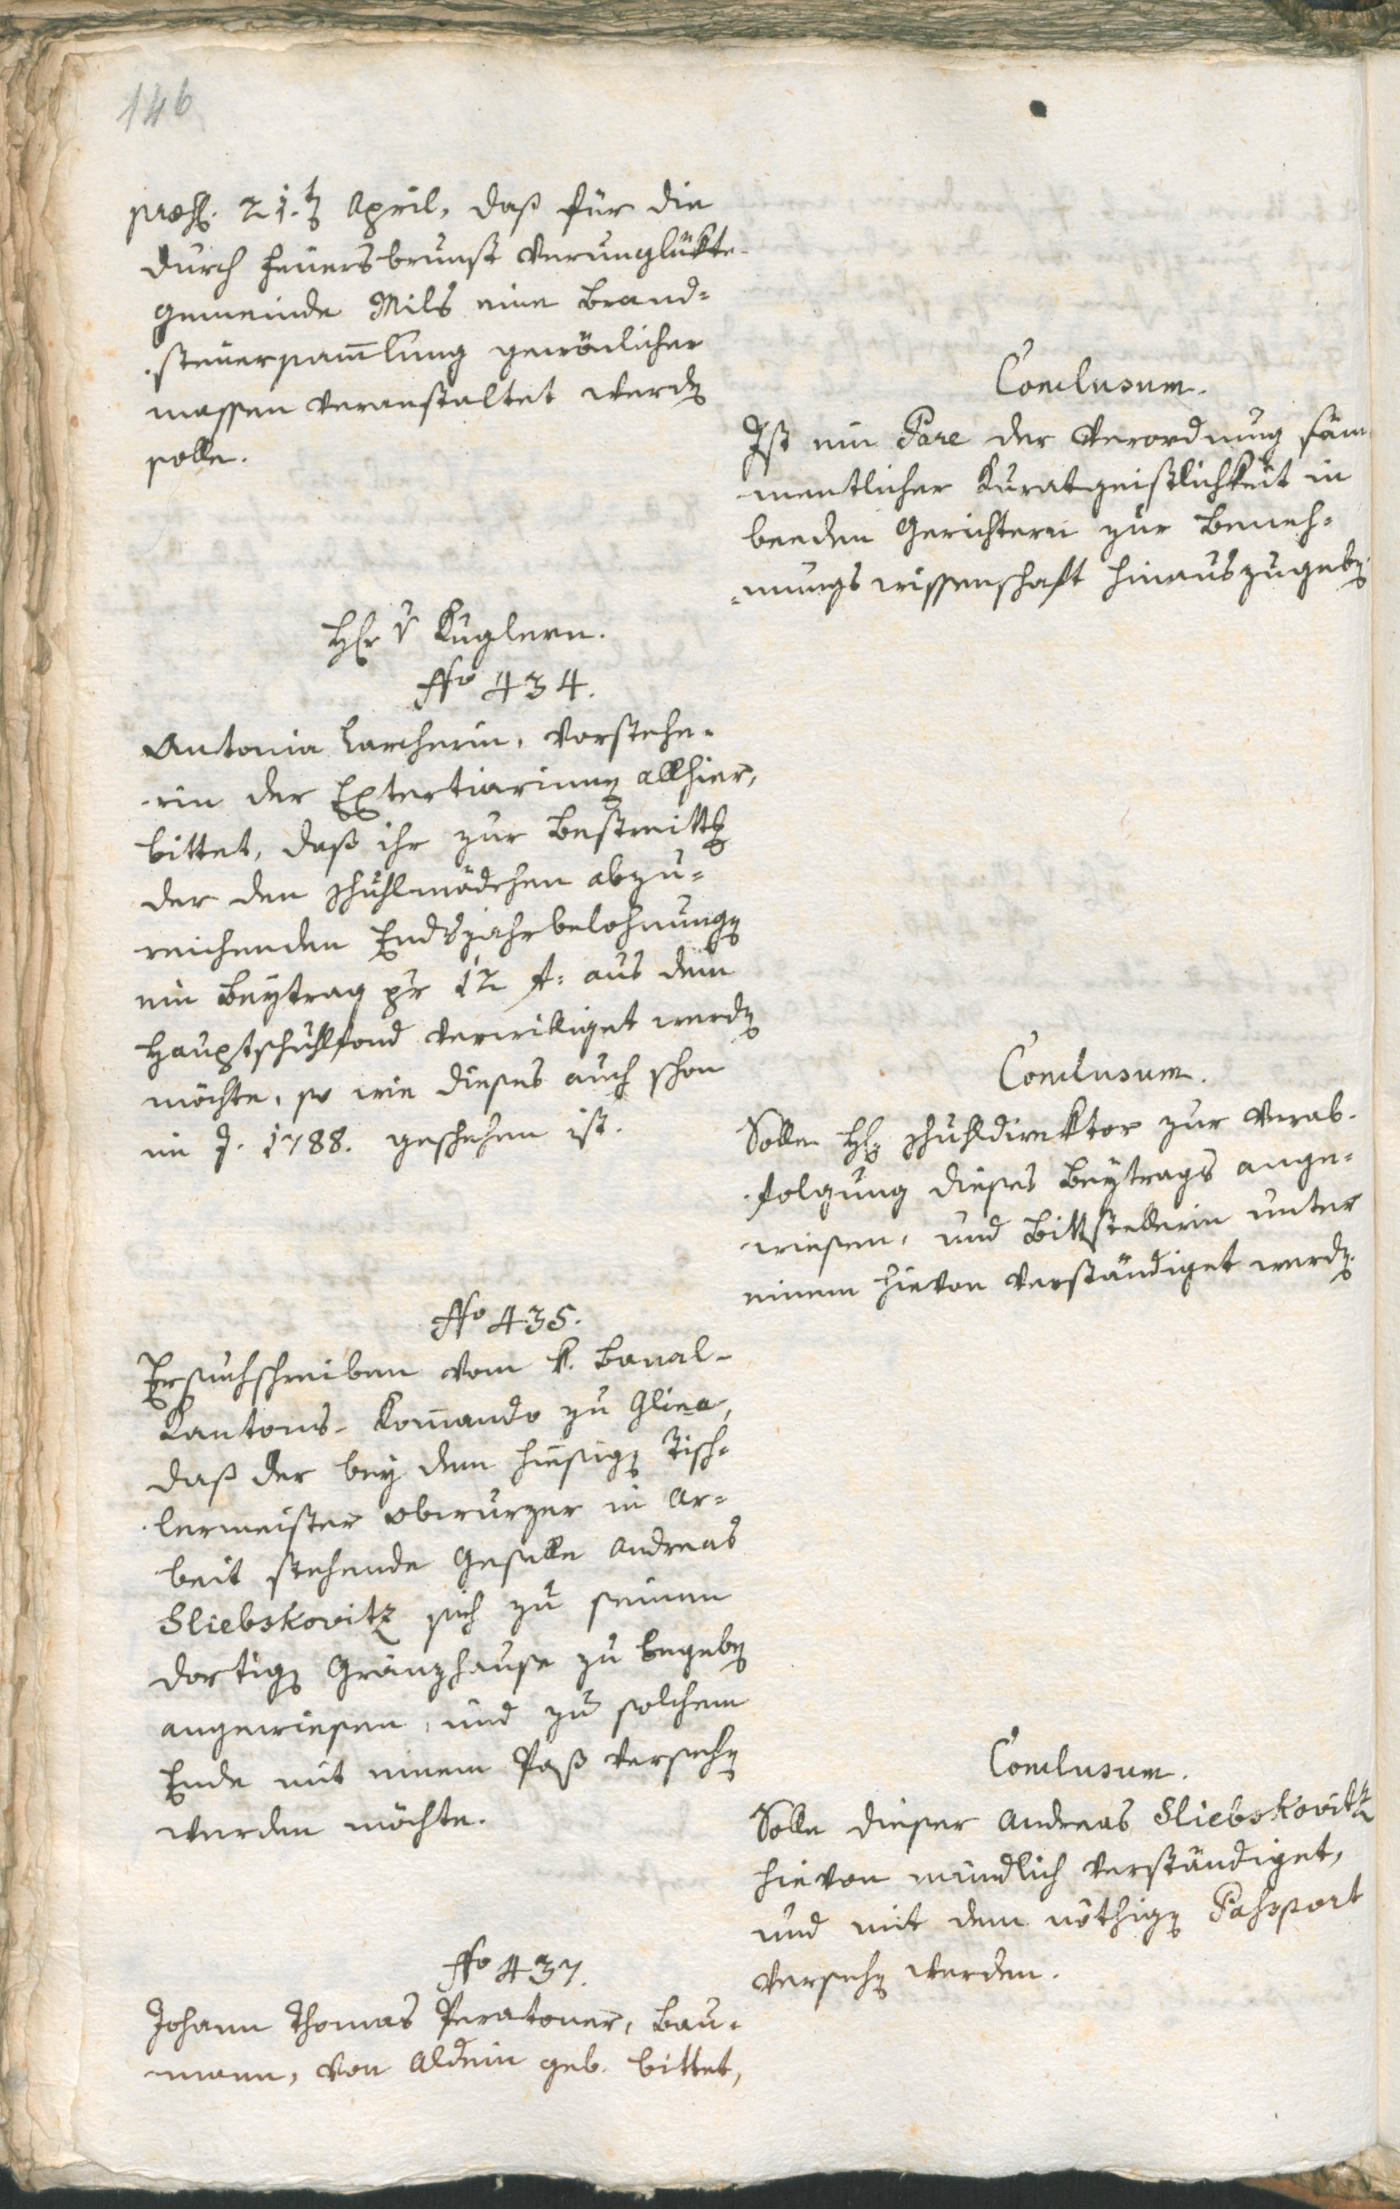 146
praes. 21.ten April, daß für die
durch Feuersbrunst verunglükte
Gemeinde Mils eine Brand=
steuersammlung gewönlicher
massen veranstaltet werden
solle.
Conclusum.
Ist ein Pare der Verordnung säm
mentlicher Kuratgeistlichkeit in
beeden Gerichtern zur Beneh=
=mungswissenschaft hinauszugeben
Hr v Kuglern.
No 434.
Antonia Larcherin, Vorstehe=
rin der Extertiarinnen allhier,
bittet, daß ihr zur Bestreitten
der den Schuhlmädchen abzu=
reichenden Endsjahrbelohnungen
ein Beytrag pr 12 f: aus dem
Hauptschuhlfond verwilliget werden
möchte, so wie dieses auch schon
im J. 1788. geschehen ist.
Conclusum.
Solle Hr Schuhldirektor zur Verab-
folgung dieses Beytrags ange=
wiesen, und Bittstellerin unter
einem hievon verständiget werden.
No 435.
Ersuchschreiben vom k. Banal-
Kantons-Kommando zu Glina,
daß der bey dem hiesigen Tisch=
lermeister Obwurzer in Ar=
beit stehende Geselle Andreas
Sliebskovitz sich zu seinem
dortigen Gränzhause zu begeben
angewiesen, und zu solchem
Ende mit einem Paß versehen
werden möchte.
Conclusum.
Solle dieser Andreas Sliebskovitz
hievon mündlich verständiget,
und mit dem nöthigen Passport
versehen werden.
No 437.
Johann Thomas Peratoner, Bau=
mann, von Aldein geb. bittet,